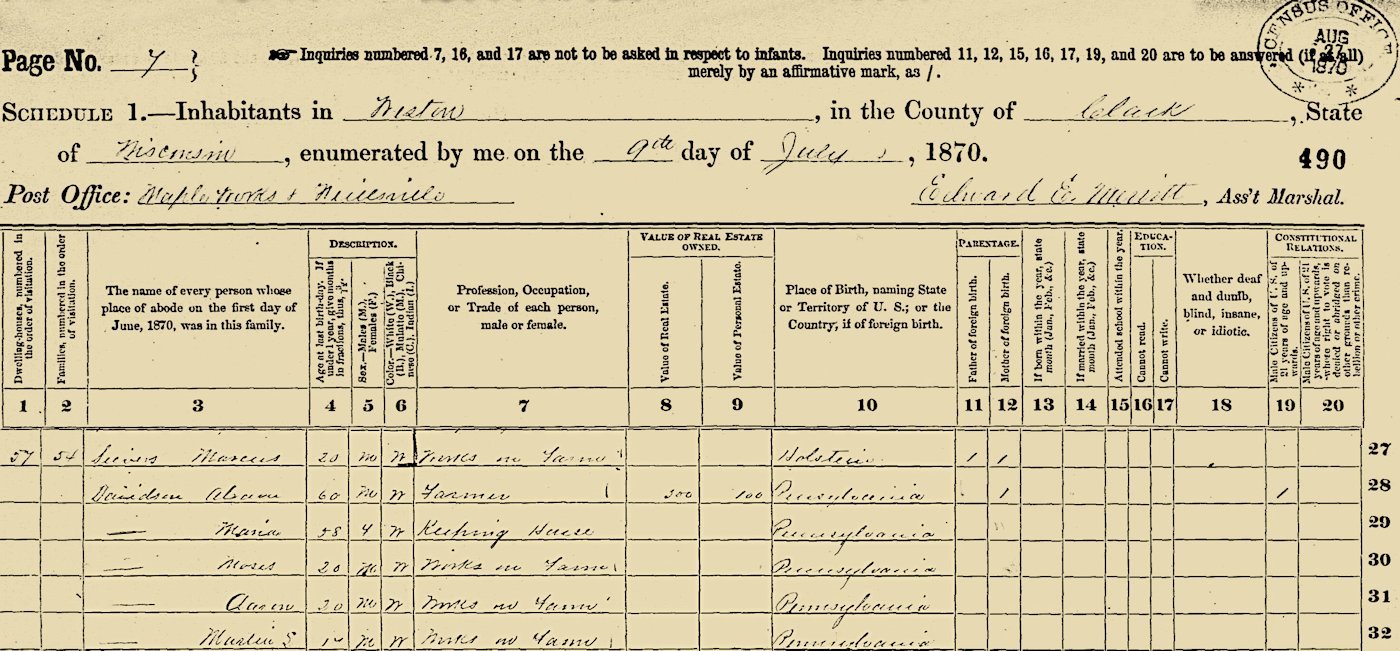 CENSUS OFFICE
AUG
27
1870
Page No. 7
Inquiries numbered 7, 16, and 17 are not to be asked in respect to infants. Inquiries numbered 11, 12, 15, 16, 17, 19, and 20 are to be answered (if at all)
merely by an affirmative mark, as /.
SCHEDULE 1.—Inhabitants in Weston, in the County of Clark, State
of Wisconsin, enumerated by me on the 9th day of July, 1870.
490
Post Office: Maple Works & Neillsville
Edward E. Merritt, Ass't Marshal.
Dwelling-houses, numbered in the order of visitation.
Families, numbered in the order of visitation.
The name of every person whose place of abode on the first day of June, 1870, was in this family.
DESCRIPTION.
Age at last birth-day. If under 1 year, give months in fractions, thus,
Sex.—Males (M.), Females (F.)
Color.—White (W.), Black (B.), Mulatto (M.), Chinese (C.), Indian (I.)
Profession, Occupation, or Trade of each person, male or female.
VALUE OF REAL ESTATE OWNED.
Value of Real Estate.
Value of Personal Estate.
Place of Birth, naming State or Territory of U. S.; or the Country, if of foreign birth.
PARENTAGE.
Father of foreign birth.
Mother of foreign birth.
If born within the year, state month (Jan., Feb., &c.)
If married within the year, state month (Jan., Feb., &c.)
Attended school within the year.
EDUCATION.
Cannot read.
Cannot write.
Whether deaf and dumb, blind, insane, or idiotic.
CONSTITUTIONAL RELATIONS.
Male Citizens of U. S. of 21 years of age and upwards.
Male Citizens of U. S. of 21 years of age and upwards, whose right to vote is denied or abridged on other grounds than rebellion or other crime.
1 2 3 4 5 6 7 8 9 10 11 12 13 14 15 16 17 18 19 20
57 54 Marcus 20 M W Works on Farm Holstein / / 27
Davidson 60 M W Farmer 300 100 Pennsylvania / / 28
— Maria 58 F W Keeping House Pennsylvania 29
— Moses 20 M W Works on Farm Pennsylvania 30
— Aaron 20 M W Works on Farm Pennsylvania 31
— Martin S M W Works on Farm Pennsylvania 32